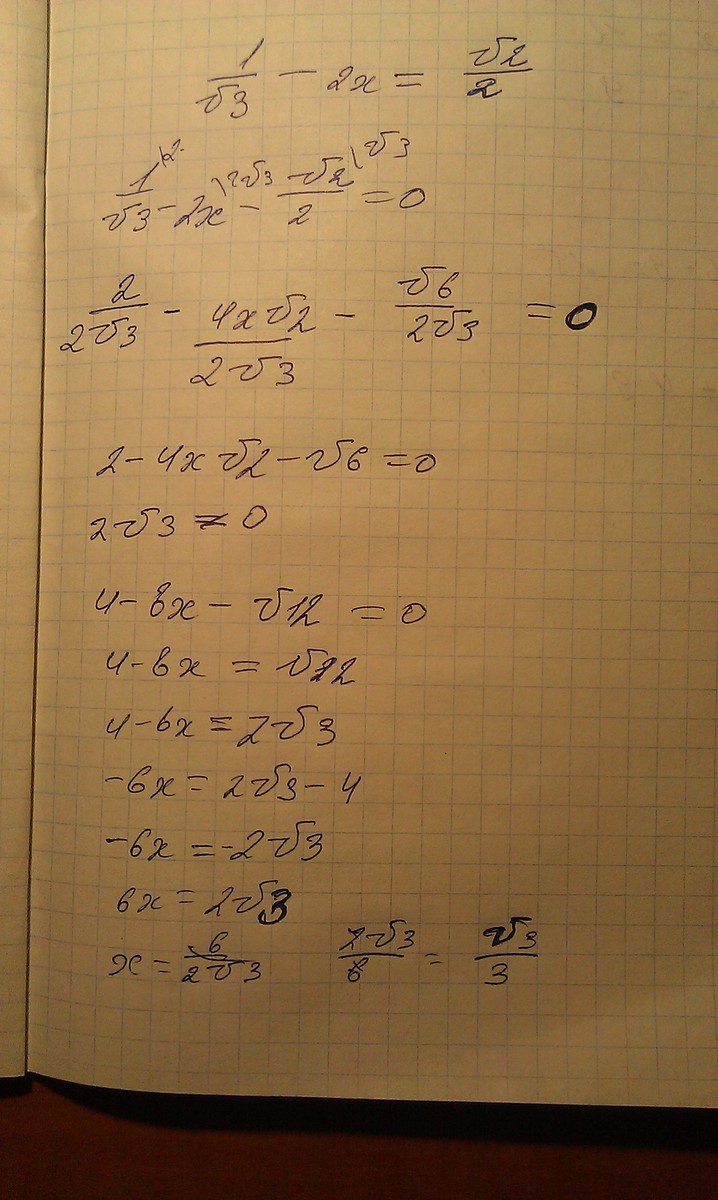 1/√3 − 2x = √2/2
1\2/√3 − 2x\2√3 − √2\√3/2 = 0
2/2√3 − 4x√2/2√3 − √6/2√3 = 0
2 − 4x√2 − √6 = 0
2√3 ≠ 0
4 − 8x − √12 = 0
4 − 6x = √12
4 − 6x = 2√3
−6x = 2√3 − 4
−6x = −2√3
6x = 2√3
x = 6/2√3 2√3/6 = √3/3